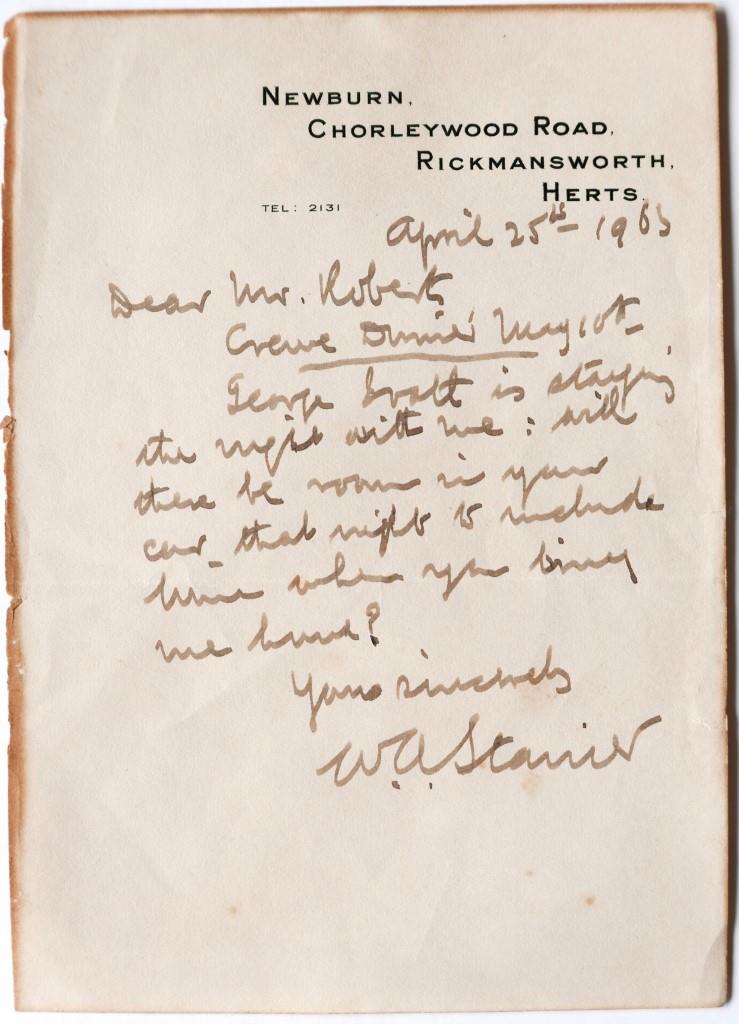 NEWBURN,
CHORLEYWOOD ROAD,
RICKMANSWORTH,
HERTS.
TEL: 2131
April 25th 1963
Dear Mr. Roberts
Crewe Dinner May 10th
George Ivatt is staying
the night with me: will
there be room in your
car that night to include
him when you bring
me home?
Yours sincerely
W.A. Stanier